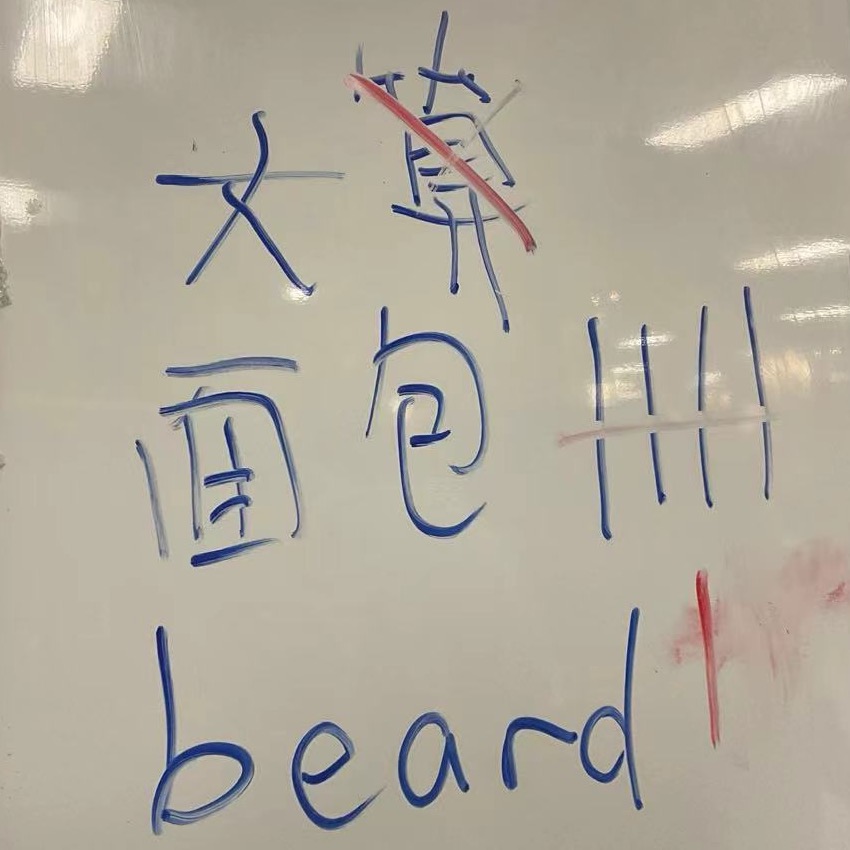 大算
面包
beard